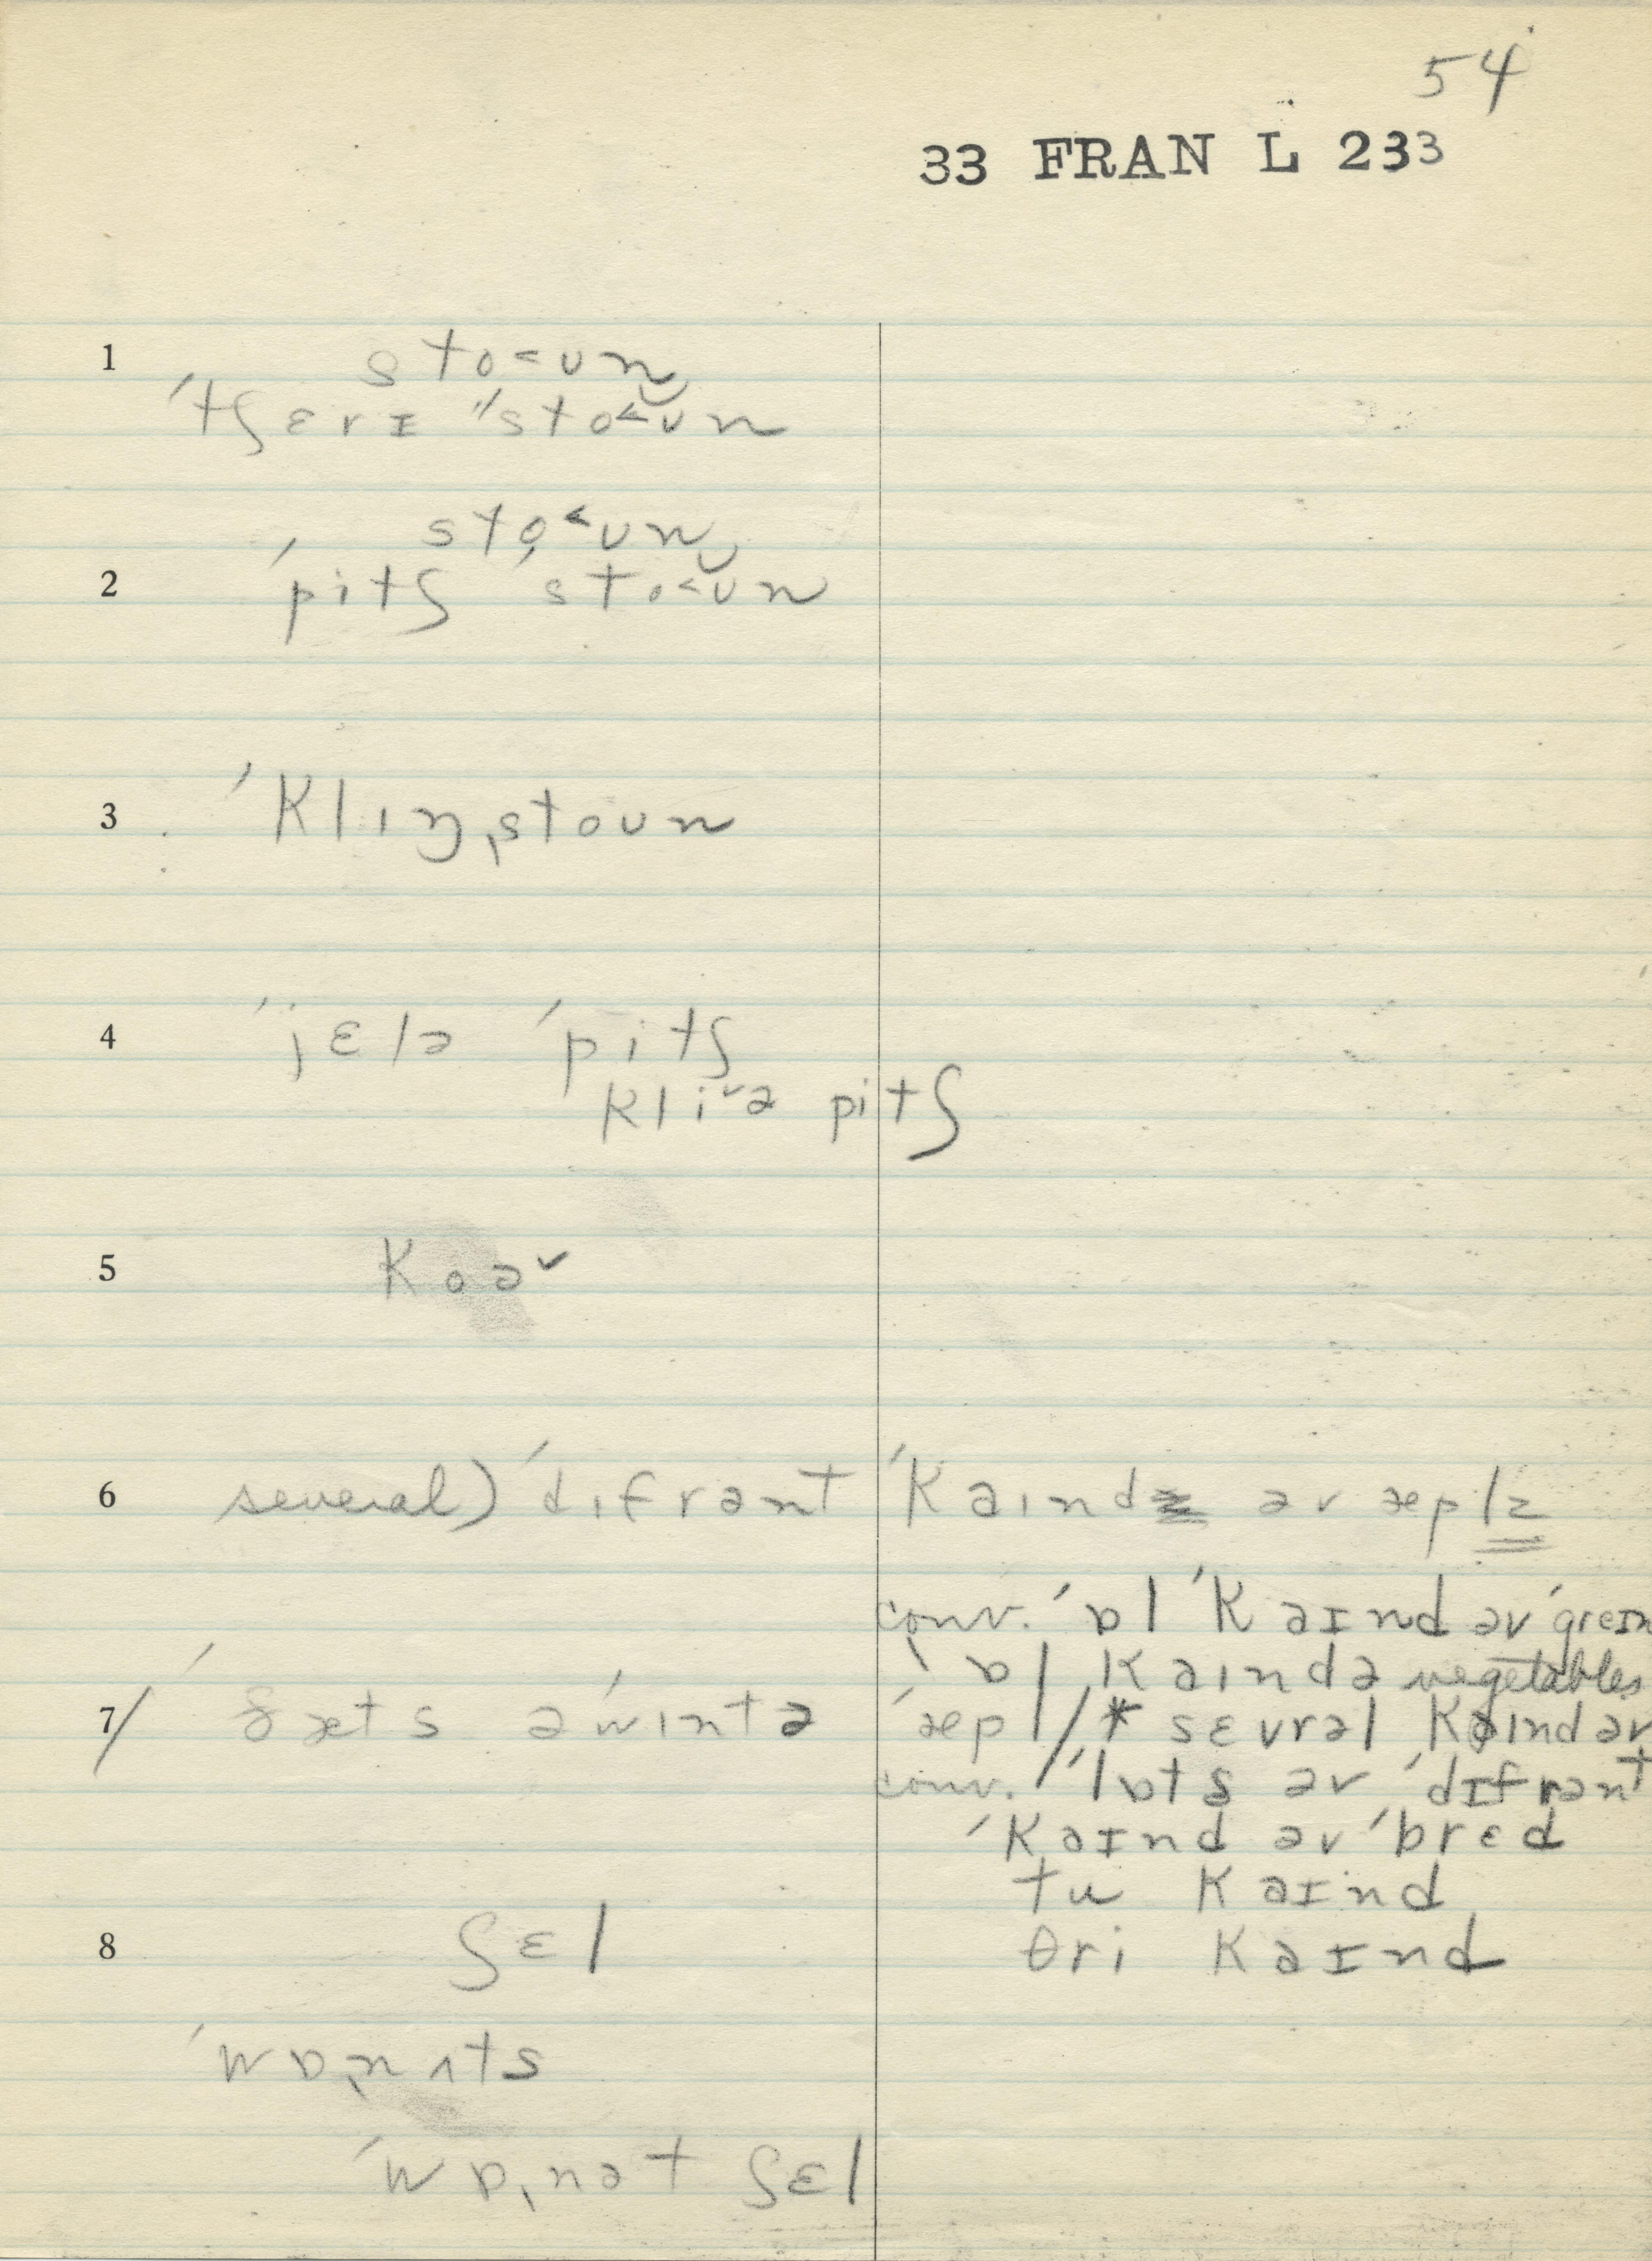 54
33 FRAN L 233
1 sto˂ʊn
ˈtʃɛrɪ ˈˈsto˂ʊn
sto˂ʊn
2 ˈpitʃ ˈsto˂ʊn
3 ˈklɪŋˌstoʊn
4 ˈˈjɛlə ˈpitʃ
kli˅ə pitʃ
5 koə˅
6 several) ˈdɪfrənt ˈkaɪnd əv æplz
conv. ˈɒl ˈkaɪnd əv ˈgreɪn
ˌɒl ˌkaɪndə vegetables
7/ ˈðæts əˈwɪntə ˈæpl/* sɛvrəl kaɪnd əv
conv. / ˈlɒts əv ˈdɪfrənt
ˈkaɪnd əv ˈbrɛd
tu kaɪnd
8 ʃɛl θri kaɪnd
ˈwɒˌnʌts
ˈwɒˌnət ʃɛl